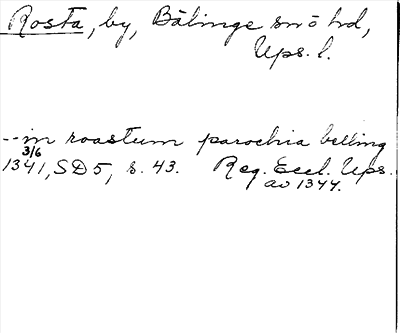 Rosta, by, Bälinge sn o hd,
Ups. l.
-- in roastum parochia belling
3/6
1341, SD 5, s. 43. Reg. Eccl. Ups.
av 1344.